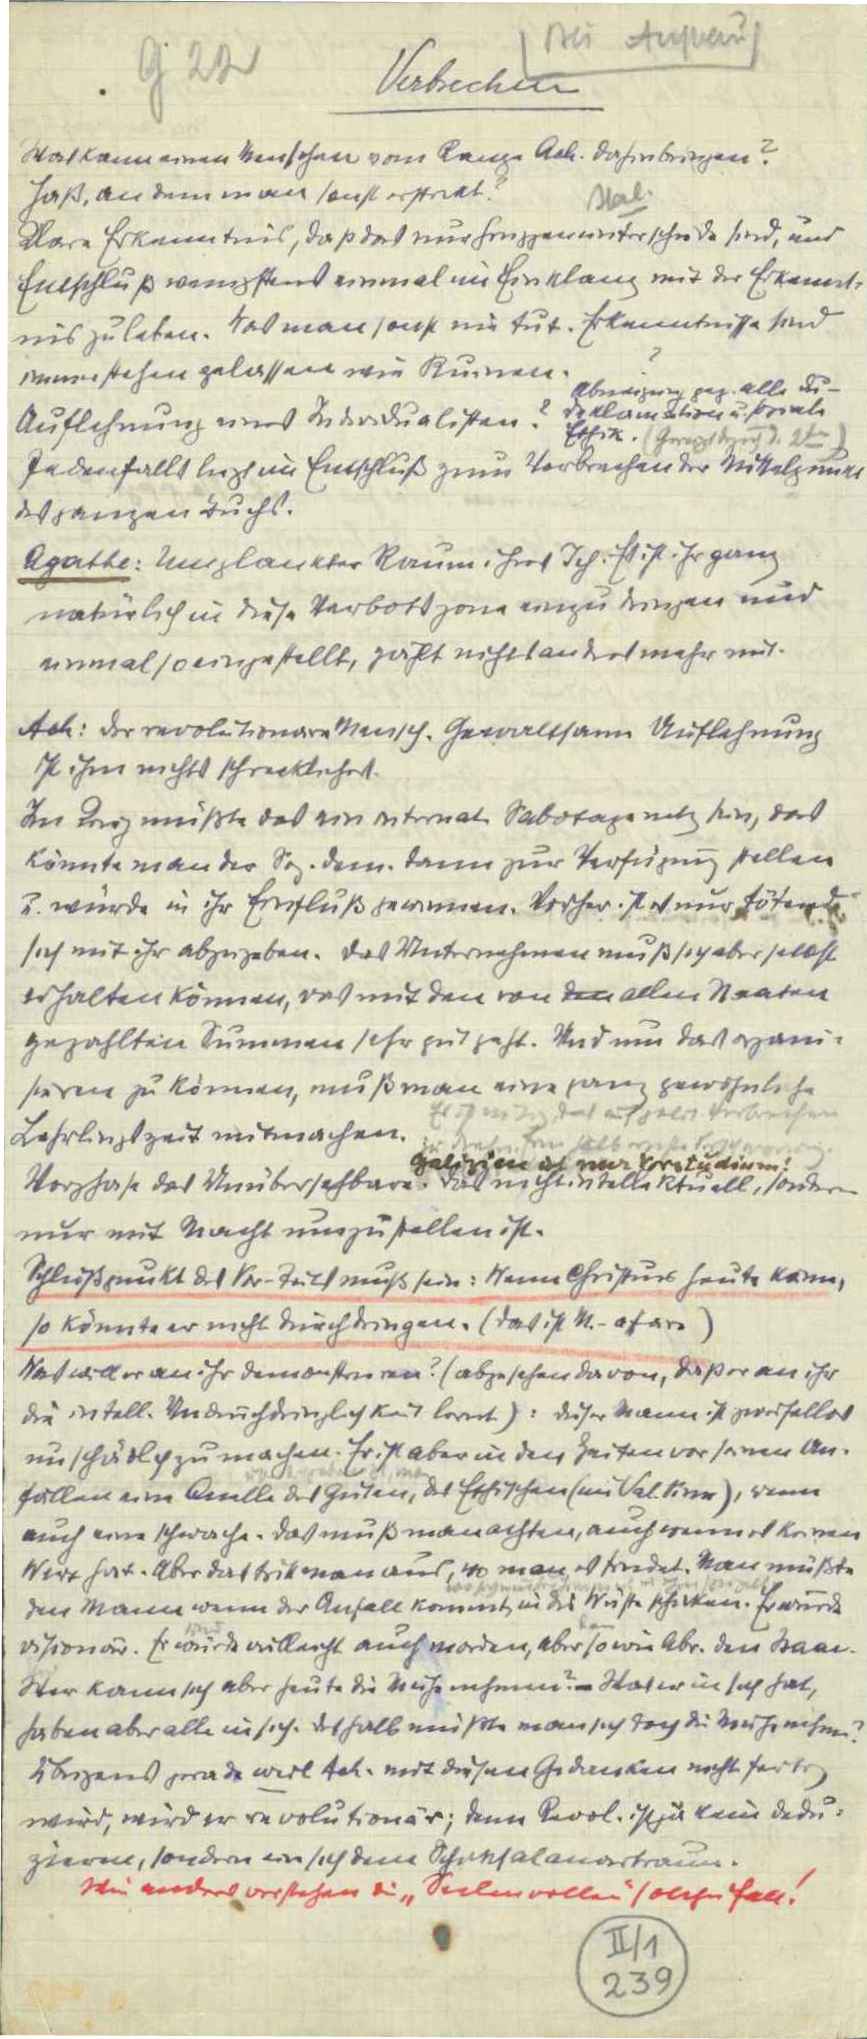 g 22
Bei Aufbau
Verbrechen
Was kann einen Menschen vom Range Ach. dahinbringen?
Haß, an dem man sonst erstickt?
Klare Erkenntnis, daß das nur Gruppenunterschiede sind, und
Entschluß wenigstens einmal im Einklang mit der Erkennt-
nis zu leben. Was man sonst nie tut. Erkenntnisse sind
immer stehen gelassen wie Ruinen.
?
Auflehnung eines Individualisten?
Abneigung geg. alle
Deklamation u. soziale
Ethik.
Jedenfalls liegt im Entschluß zum Verbrechen der Mittelpunkt
des ganzen Buchs.
Agathe: Umplankter Raum ihres Ich. Es ist ihr ganz
natürlich in diese Verbotszone einzudringen und
einmal so eingestellt, zählt nichts andres mehr mit.
Ach: der revolutionäre Mensch. Gewaltsame Auflehnung
ist ihm nichts schreckliches.
Im Krieg müßte das ein internat. Sabotagenetz sein, das
könnte man der Soz. dem. dann zur Verfügung stellen
u. würde in ihr Einfluß gewinnen. Vorher ist es nur tötend
sich mit ihr abzugeben. Das Unternehmen muß sich aber selbst
erhalten können, was mit den von den allen Staaten
gezahlten Summen sehr gut geht. Und um das organi-
sieren zu können, muß man eine ganz gewöhnliche
Lehrlingszeit mitmachen.
Galizien ist nur Vorstudium!
Vorphase das Unübersehbare. Das nicht intellektuell, sondern
nur mit Macht umzustellen ist.
Schlußpunkt des Vor-Teils muß sein: Wenn Christus heute käme,
so könnte er nicht durchdringen. (Das ist M.- )
Was will er an ihr demonstrieren? (abgesehen davon, daß er an ihr
die intell. Undurchdringlichkeit lernt): dieser Mann ist zweifellos
unschädlich zu machen. Er ist aber in den Zeiten vor seinen An-
fällen eine Quelle des Guten, des Ethischen (im Val. Sinn), wenn
auch eine schwache. Das muß man achten, auch wenn es keinen
Wert hat. Aber das trifft man aus, wo man es findet. Man müßte
den Mann wenn der Anfall kommt, in die Wüste schicken. Er würde
visionär. Er würde vielleicht auch morden, aber so wie Abr. den Isaac.
Wer kann sich aber heute die Mühe nehmen? – Was er in sich hat,
haben aber alle in sich. deshalb müßte man sich doch die Mühe nehmen?
Übrigens gerade weil Ach. mit diesen Gedanken nicht fertig
wird, wird er revolutionär; denn Revol. ist ja kein dedu-
zieren, sondern ein sich dem Schicksal anvertraun.
Wie anders verstehen die „Seelenvollen" solchen Fall!
II/1
239